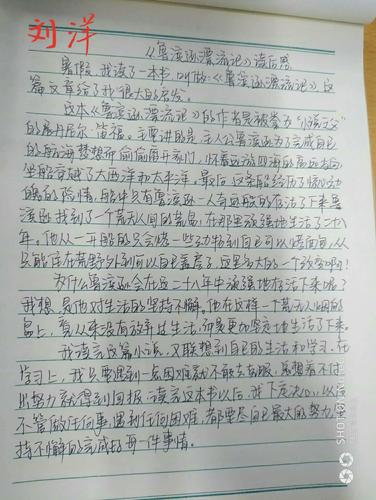 刘洋
《鲁滨逊漂流记》读后感
暑假,我读了一本书,叫做《鲁滨逊漂流记》,这
篇文章给了我很大的启发。
这本《鲁滨逊漂流记》的作者是被誉为“小说之父”
的丹尼尔·笛福。主要讲的是:主人公鲁滨逊为了完成自己
的航海梦想而偷偷离开家门,怀着远游四海的高远志向,
坐船穿越了大西洋和太平洋。最后,这条船经历了惊心动
魄的险情,船中只有鲁滨逊一人奇迹般的存活了下来。鲁
滨逊找到了一个荒无人间的荒岛,在那里顽强地生活了二十八
年。他从一开始的只会烤一些动物到自己可以烤面包,从
只能住在荒野外到可以自己盖房子,这是多大的一个改变啊!
为什么鲁滨逊会在这二十八年中顽强地存活下来呢?
我想,是他对生活的坚持不懈。他在这样一个荒无人烟的
岛上,看从来没有放弃过生活,而是更加坚定地生活了下来。
我读完这篇小说,又联想到自己的生活和学习。在
学习上,我只要遇到一点困难就不敢去克服,总想着不付
出努力就得到回报。读完这本书以后,我下定决心:以后
不管做任何事,遇到任何困难,都要尽自己最大的努力,坚
持不懈的完成好每一件事情。